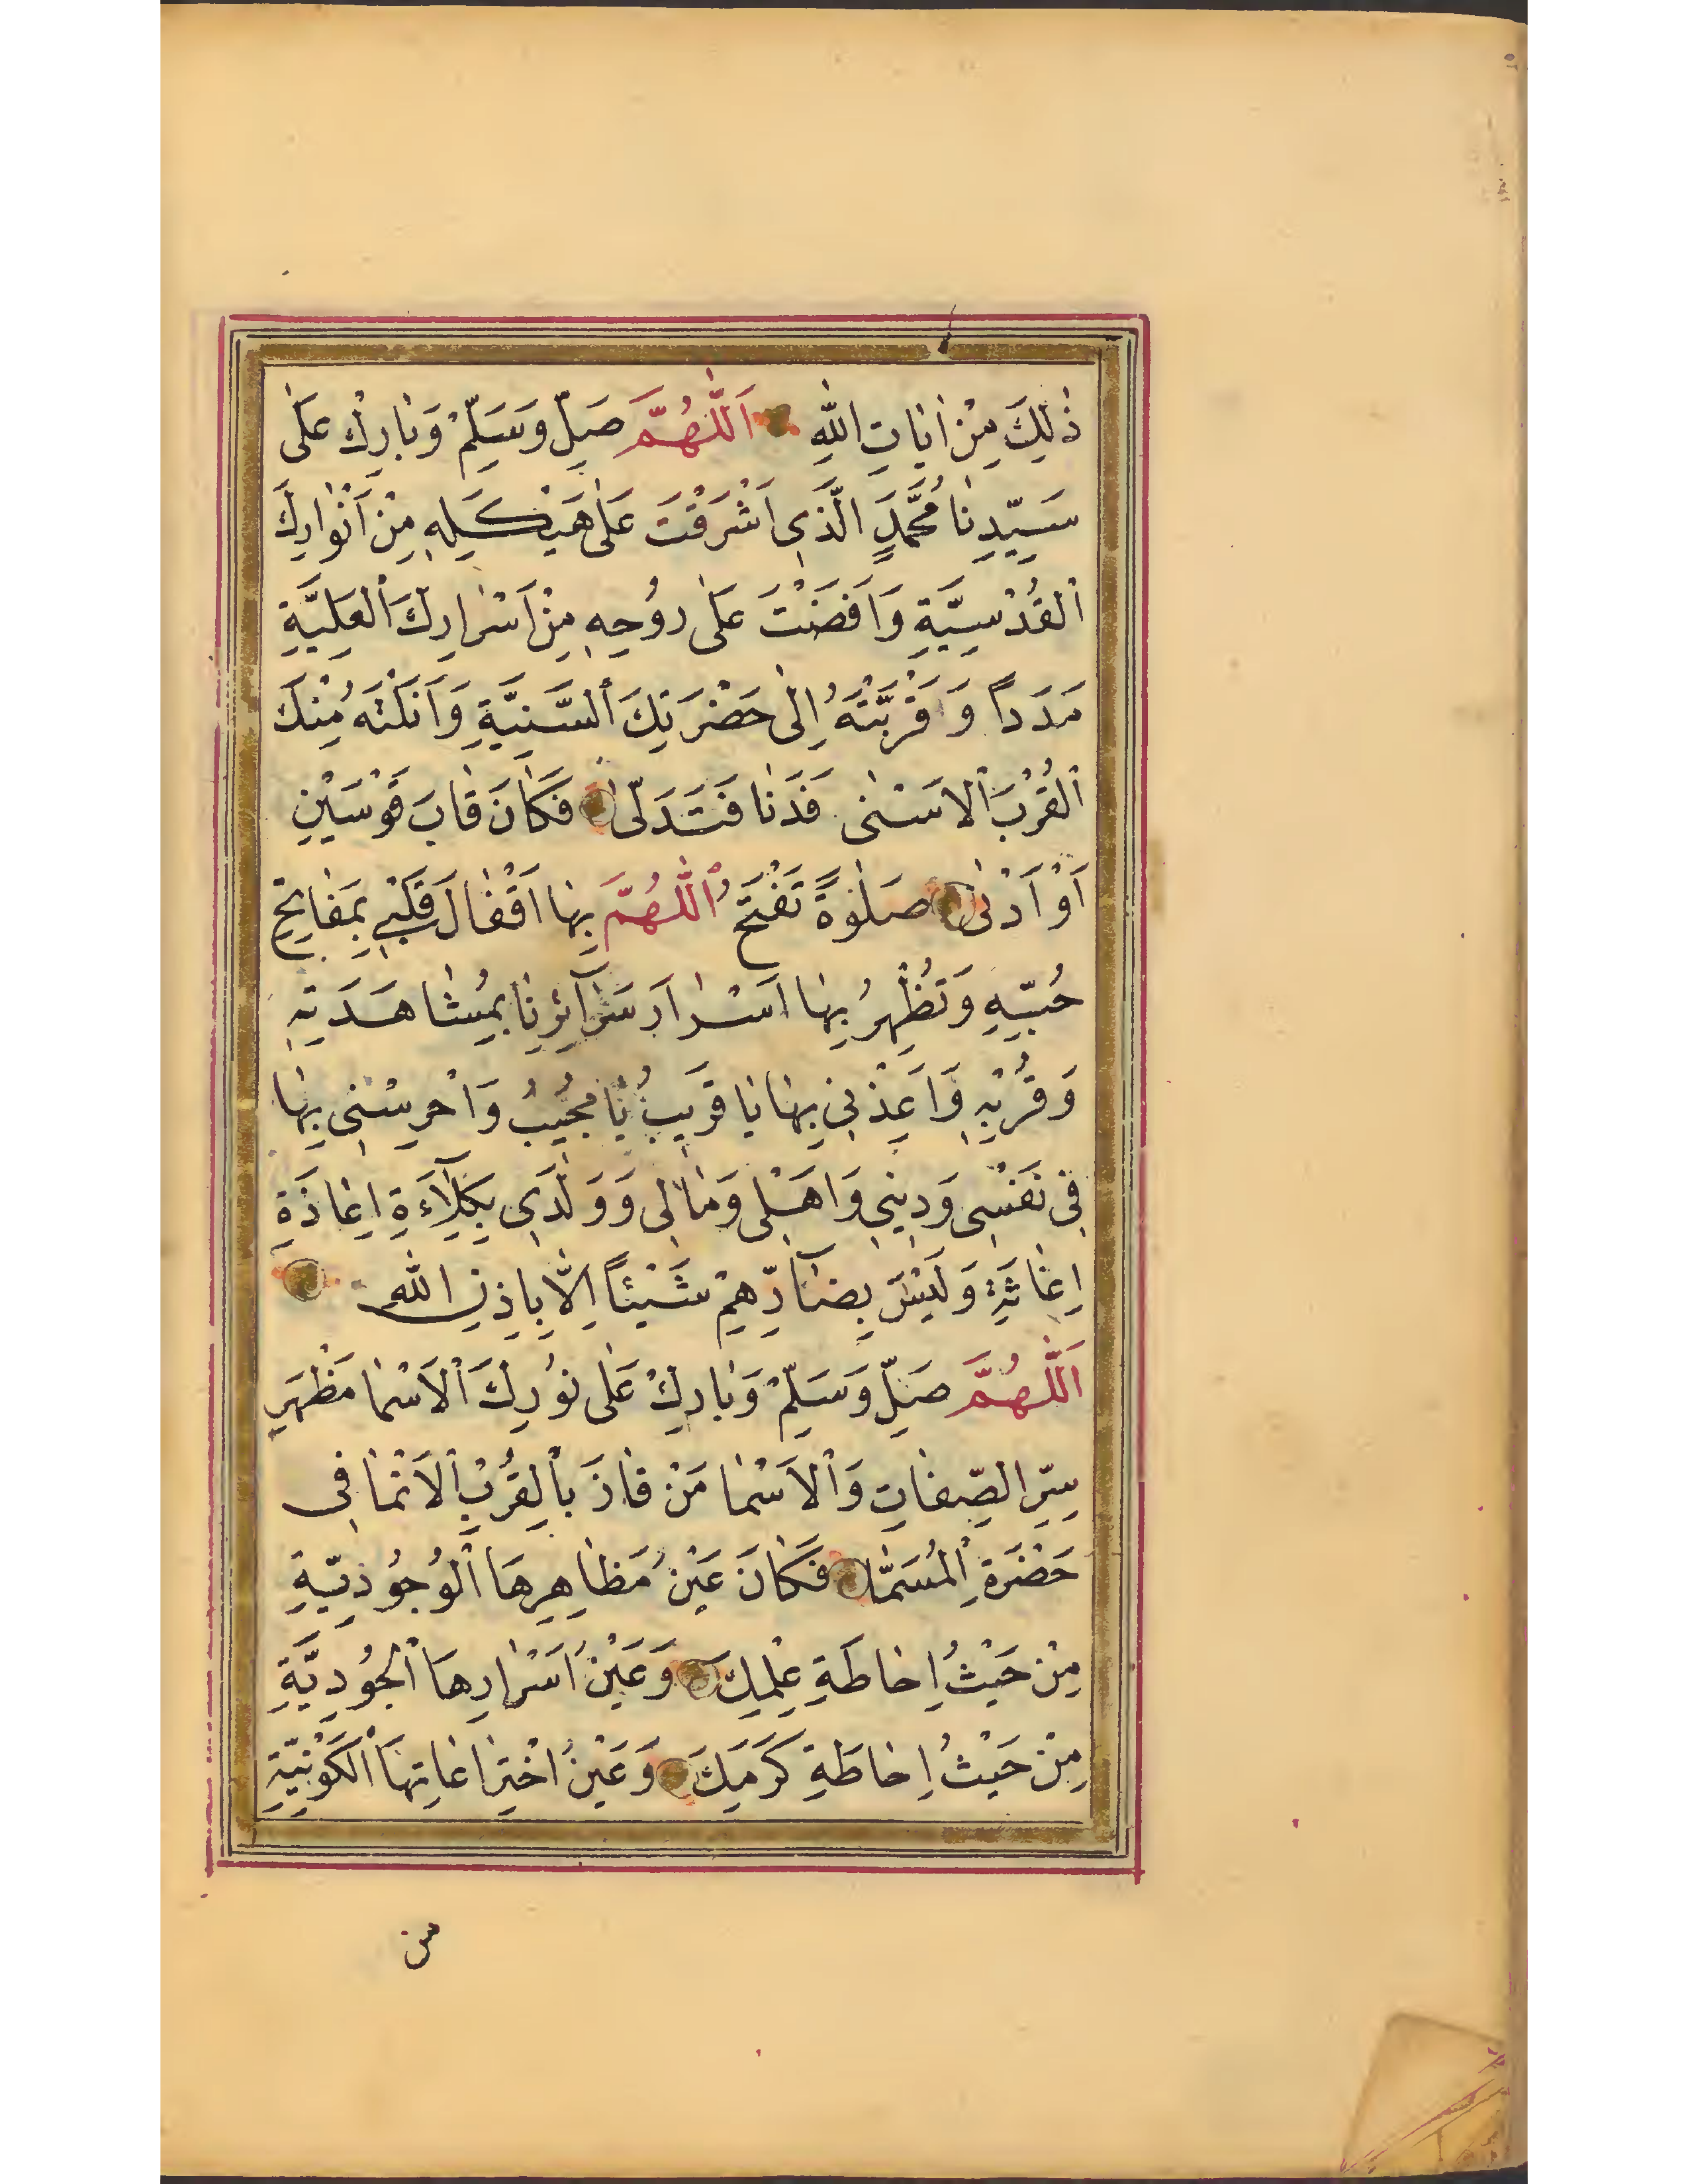 ذٰلِكَ مِنْ اٰيَاتِ اللّٰهِ اَللّٰهُمَّ صَلِّ وَسَلِّمْ وَبَارِكْ عَلٰى
سَيِّدِنَا مُحَمَّدٍ الَّذِى اَشْرَقْتَ عَلٰى هَيْكَلِهِ مِنْ اَنْوَارِكَ
الْقُدْسِيَّةِ وَاَفَضْتَ عَلٰى رُوحِهِ مِنْ اَسْرَارِكَ الْعَلِيَّةِ
مَدَداً وَاَقْرَبْتَهُ اِلٰى حَضْرَتِكَ السَّنِيَّةِ وَاَنَلْتَهُ مِنْكَ
الْقُرْبَ الْاَسْنٰى فَدَنَا فَتَدَلّٰى فَكَانَ قَابَ قَوْسَيْنِ
اَوْ اَدْنٰى صَلٰوةً تَفْتَحُ اللّٰهُمَّ بِهَا اَقْفَالَ قَلْبِى بِمَفَاتِيحِ
حُبِّهِ وَتُظْهِرُ بِهَا اَسْرَارَ سَرَآئِرِنَا بِمُشَاهَدَتِهِ
وَقُرْبِهِ وَاَعِذْنِى بِهَا يَا قَرِيبُ يَا مُجِيبُ وَاحْرِسْنِى بِهَا
فِى نَفْسِى وَدِينِى وَاَهْلِى وَمَالِى وَوَلَدِى بِكِلَآءَةِ اِعَاذَةِ
اِغَاثَةِ وَلَيْسَ بِضَآرِّهِمْ شَيْئاً اِلَّا بِاِذْنِ اللّٰهِ
اَللّٰهُمَّ صَلِّ وَسَلِّمْ وَبَارِكْ عَلٰى نُورِكَ الْاَسْمَا مَظْهَرِ
سِرِّ الصِّفَاتِ وَالْاَسْمَا مَنْ فَازَ بِالْقُرْبِ الْاَنْمَا فِى
حَضْرَةِ الْمُسَمَّا فَكَانَ عَيْنَ مَظَاهِرِهَا الْوُجُودِيَّةِ
مِنْ حَيْثُ اِحَاطَةِ عِلْمِكَ وَعَيْنَ اَسْرَارِهَا الْجُودِيَّةِ
مِنْ حَيْثُ اِحَاطَةِ كَرَمِكَ وَعَيْنَ اخْتِرَاعَاتِهَا الْكَوْنِيَّةِ
من